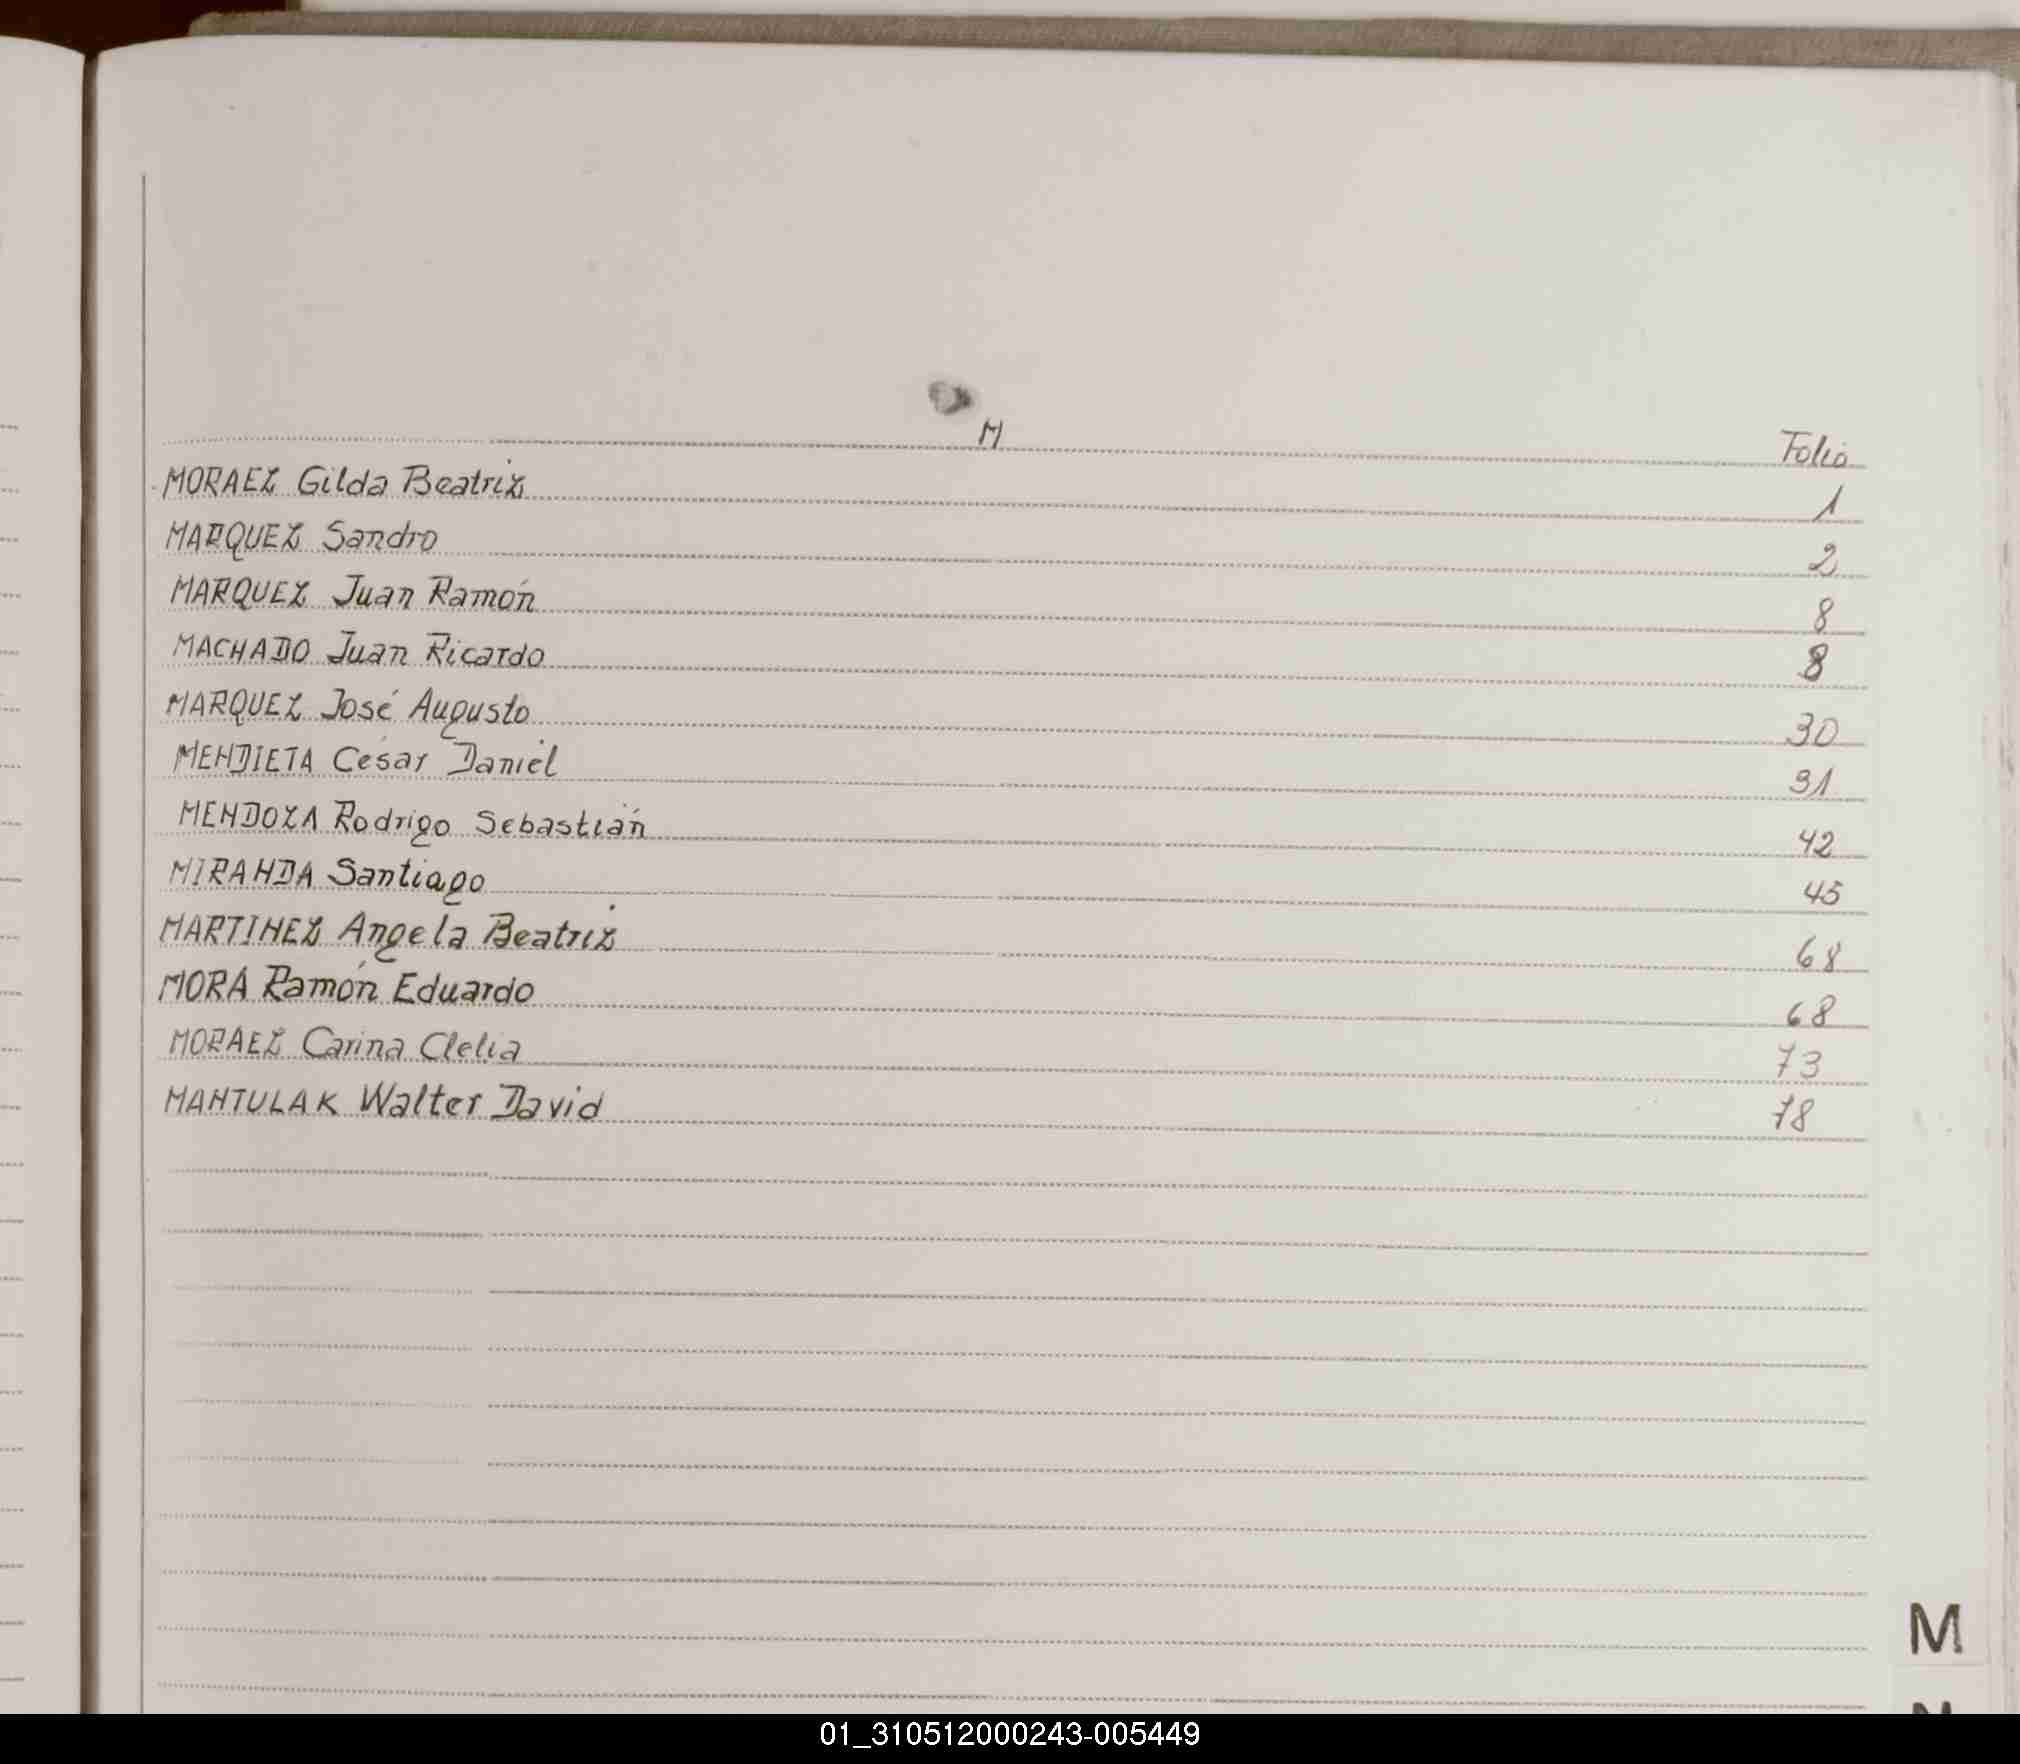 M Folio
MORAEZ Gilda Beatriz 1
MARQUEZ Sandro 2
MARQUEZ Juan Ramón 8
MACHADO Juan Ricardo 8
MARQUEZ José Augusto 30
MENDIETA César Daniel 31
MENDOZA Rodrigo Sebastián 42
MIRANDA Santiago 45
MARTINEZ Angela Beatriz 68
MORA Ramón Eduardo 68
MORAEZ Carina Clelia 73
MANTULAK Walter David 78
M
01_310512000243-005449